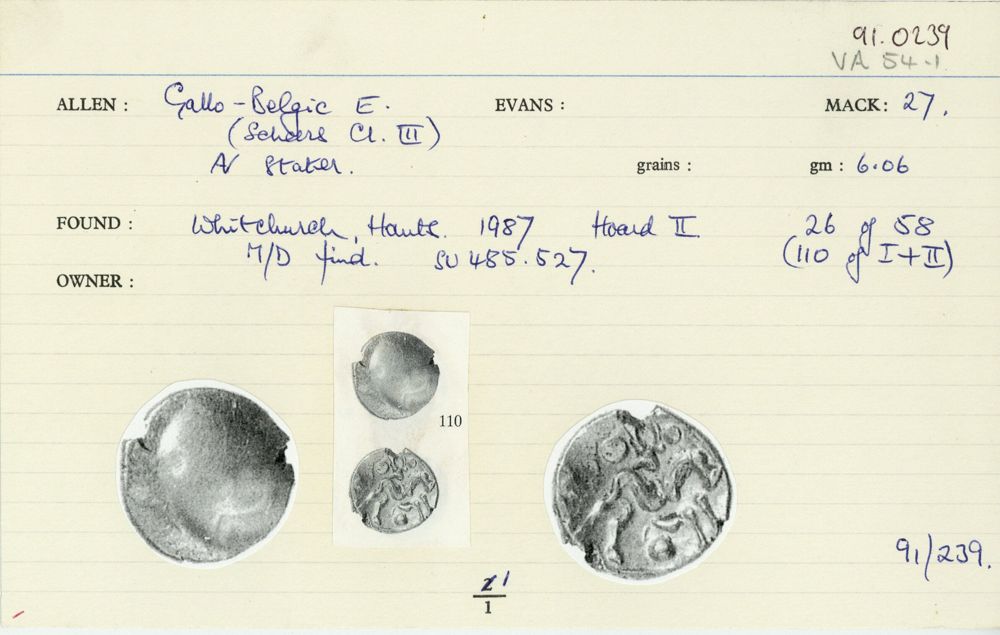 91.0239
VA 54.1
ALLEN : Gallo-Belgic E. EVANS : MACK: 27.
(Scheers Cl. III)
N Stater. grains : gm : 6.06
FOUND : Whitchurch, Hants. 1987 Hoard II 26 of 58
M/D find. SU 485.527. (110 of I+II)
OWNER :
110
91/239.
1
1